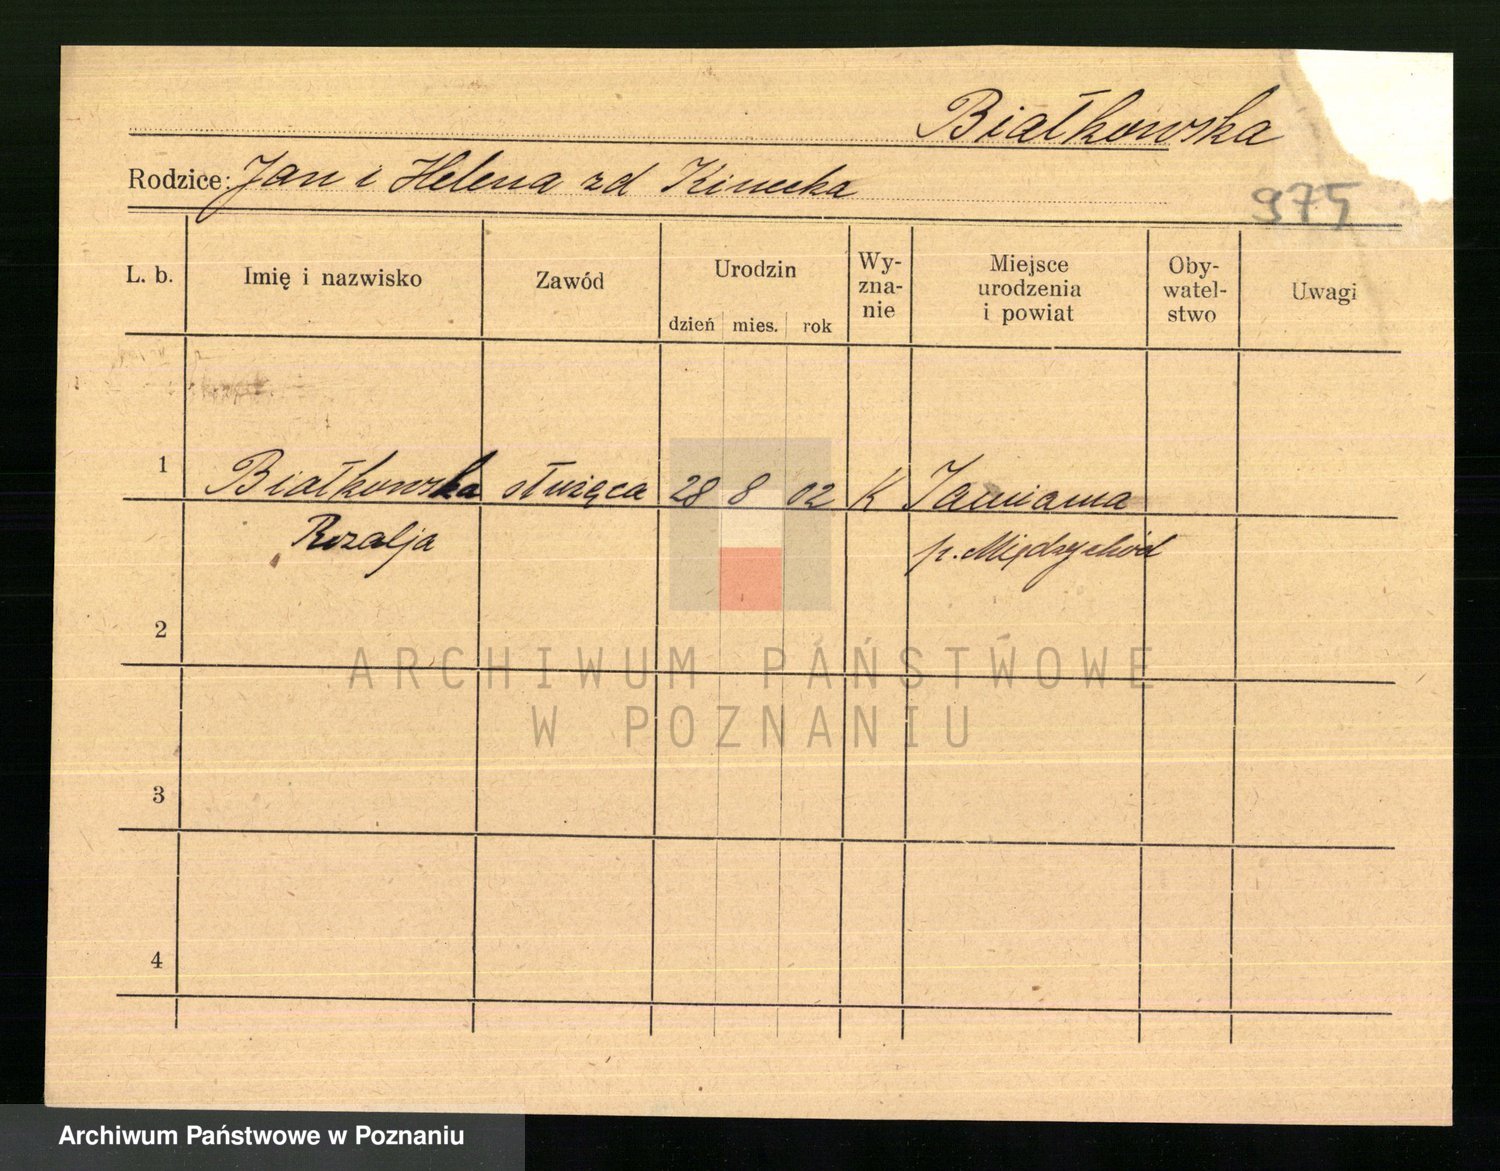 Białkowska
Rodzice: Jan i Helena zd Kinecka
975
L. b. Imię i nazwisko Zawód Urodzin dzień mies. rok Wy-zna-nie Miejsce urodzenia i powiat Oby-watel-stwo Uwagi
1 Białkowska służąca 28 8 02 K
Rozalja p. Międzychód
2
ARCHIWUM PAŃSTWOWE
W POZNANIU
3
4
Archiwum Państwowe w Poznaniu